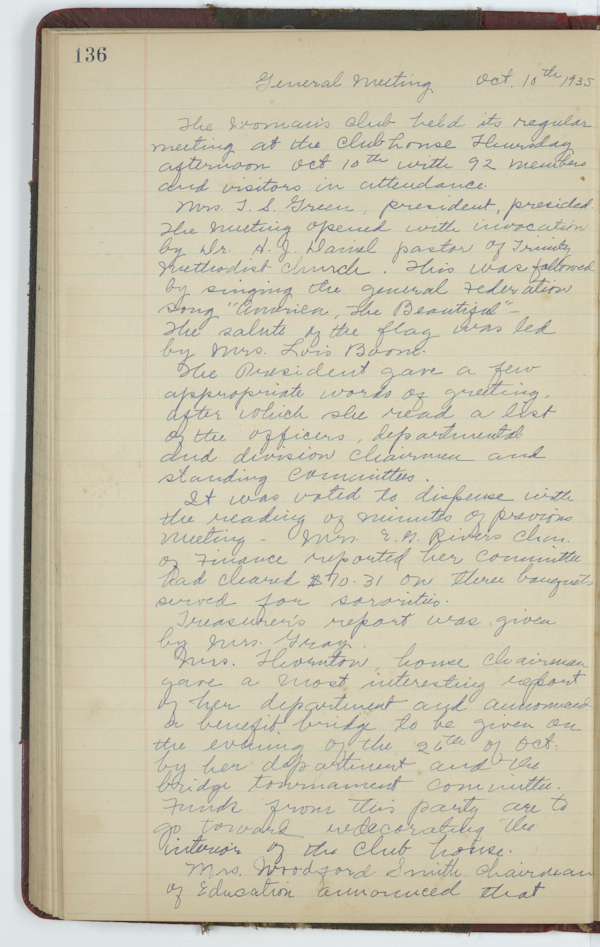 136
General Meeting Oct. 10th 1935
The Woman's Club held its regular
meeting at the Club house Thursday
afternoon Oct 10th with 92 members
and visitors in attendance.
Mrs. T. S. Green, president, presided.
The meeting opened with invocation
by Dr. H. J. Daniel pastor of Trinity
Methodist Church. This was followed
by singing the general Federation
song "America, the Beautiful" -
The salute of the flag was led
by Mrs. Lois Boone.
The President gave a few
appropriate words of greeting,
after which she read a list
of the officers, departmental
and division Chairmen and
standing Committees.
It was voted to dispense with
the reading of minutes of previous
meeting - Mrs. E. G. Rivers Chm.
of Finance reported her Committee
had cleared $70.31 on three banquets
served for sororities.
Treasurer's report was given
by Mrs. Gray.
Mrs. Thornton, house Chairman
gave a most interesting report
of her department and announced
a benefit bridge to be given on
the evening of the 26th of Oct.
by her department and the
bridge tournament Committee.
Funds from this party are to
go toward redecorating the
interior of the Club house.
Mrs. Woodford Smith Chairman
of Education announced that